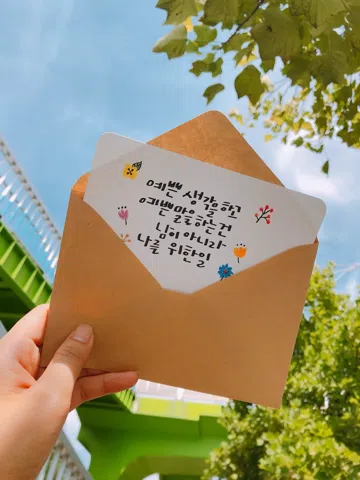 예쁜 생각을하고
예쁜마을 말로하는건
님이 아니라
나를 위한일